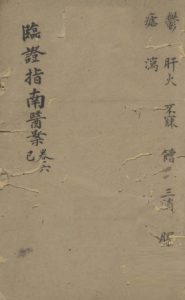 鬱 肝火 不寐 嘈 三消 脾
瘧 瀉
臨證指南醫案 卷六
己